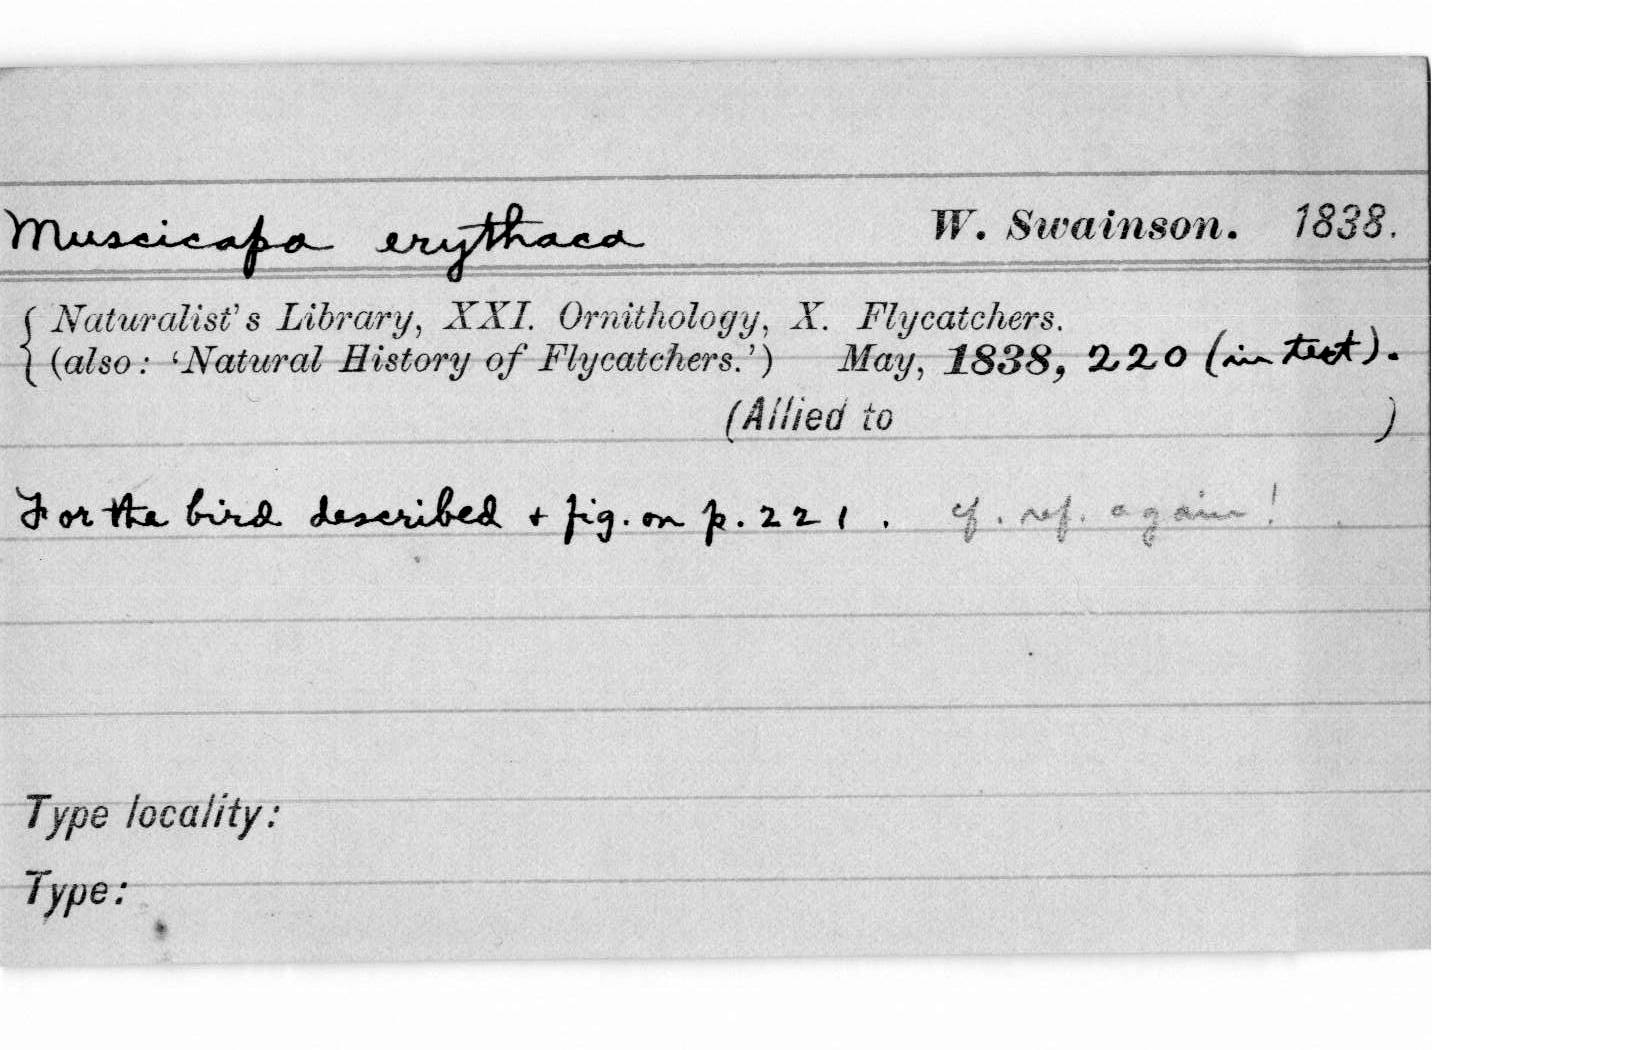 Muscicapa erythaca W. Swainson. 1838.
Naturalist's Library, XXI. Ornithology, X. Flycatchers.
(also: 'Natural History of Flycatchers.') May, 1838, 220 (in text).
(Allied to )
For the bird described + fig. on p. 221. cf. ref. again!
Type locality:
Type: